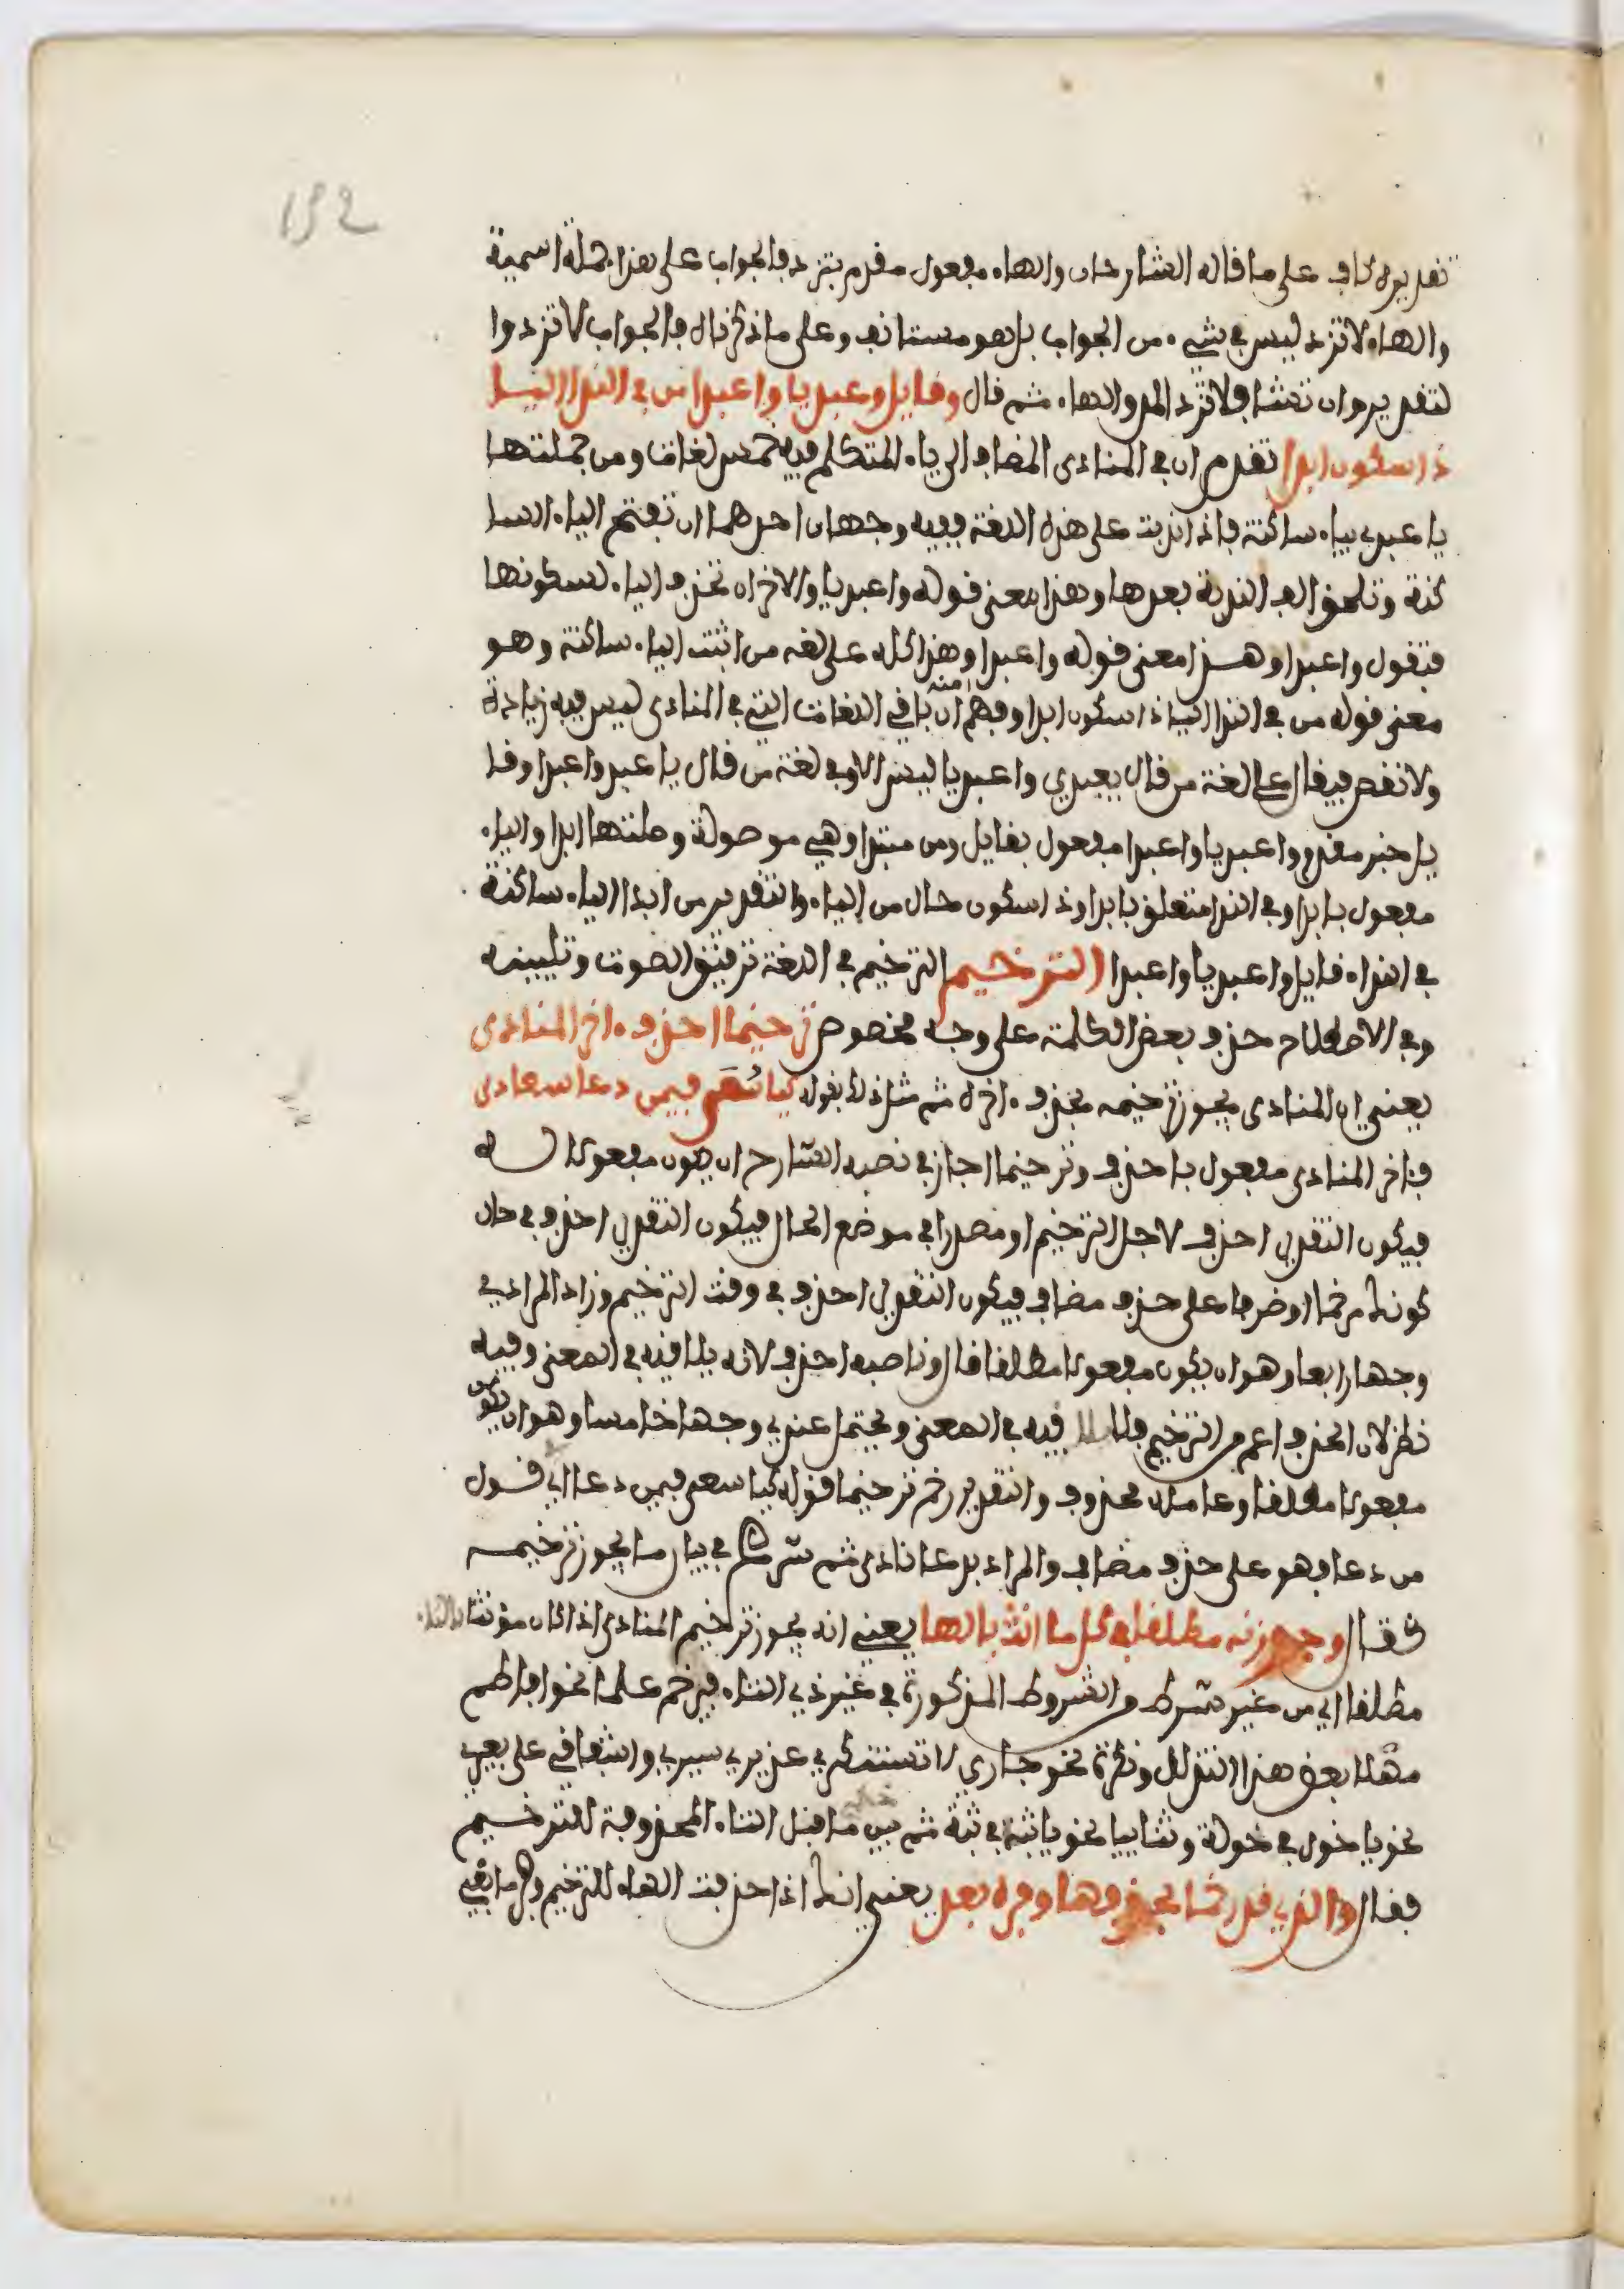 132
تقديره كاف على ما قاله الشارحان والهاء مفعول مقدم بتزد فالجواب على هذا جملة اسمية
والهاء لا تزد ليس في شيء من الجواب بل هو مستانف وعلى ما ذكرناه فالجواب لا تزد وا
لتقدير وان تشا فلا تزد المد والهاء ثم قال وقايل واعبديا واعبدا من في الندا اليا
ذا سكون ابدا تقدم ان في المنادى المضاف الى ياء المتكلم فيه خمس لغات ومن جملتها
يا عبدي بياء ساكنة فاذا ندبت على هذه اللغة ففيه وجهان احدهما ان تفتح الياء السا
كنة وتلحق الف الندبة بعدها وهذا معنى قوله واعبديا والاخر ان تحذف الياء لسكونها
فتقول واعبدا وهذا معنى قوله واعبدا وهذا كله على لغة من اثبت الياء ساكنة وهو
معنى قوله من في الندا اليا ذا سكون ابدا وفهم منه ان باقي اللغات التي في المنادى ليس فيه زيادة
ولا نقص فيقال على لغة من قال يعبدي واعبديا ليس الا وفي لغة من قال يا عبد واعبدا وقا
يل خبر مقدم وواعبديا واعبدا مفعول بقايل ومن مبتدا وهي موصولة وصلتها ابدا والياء
مفعول بابدا وفي الندا متعلق بابدا وذا سكون حال من الياء والتقدير من ابدا الياء ساكنة
في النداء قايل واعبديا واعبدا الترخيم الترخيم في اللغة ترقيق الصوت وتليينه
وفي الاصطلاح حذف بعض الكلمة على وجه مخصوص ترخيما احذف ءاخر المنادى
يعني ان المنادى يجوز ترخيمه بحذف ءاخره ثم مثل ذلك بقوله كيا سعى فيمن دعا سعادى
فئاخر المنادى مفعول باحذف وترخيما اجاز في نصبه الشارح ان يكون مفعولا له
فيكون التقدير احذف لاجل الترخيم او مصدرا في موضع الحال فيكون التقدير احذف في حال
كونك مرخما او ظرفا على حذف مضاف فيكون التقدير احذف في وقت الترخيم وزاد المرادي
وجها رابعا وهو ان يكون مفعولا مطلقا قال وناصبه احذف لانه يلاقيه في المعنى وفيه
نظر لان الحذف اعم من الترخيم فلا يلاقيه في المعنى ويحتمل عندي وجها خامسا وهو ان يكون
مفعولا مطلقا وعامله محذوف والتقدير رخم ترخيما قوله كيا سعى فيمن دعا اي قول
من دعا فهو على حذف مضاف والمراد بدعا نادى ثم شرع في بيان ما يجوز ترخيمه
فقال وجوزنه مطلقا في كل ما انث بالها يعني انه يجوز ترخيم المنادى اذا كان مؤنثا بالتاء
مطلقا اي من غير شرط من الشروط المذكورة في غير ذي التاء فيرخم علما نحو افاطم
مهلا بعض هذا التدلل ونكرة نحو جاري لا تستنكري عذيري سيري واشفاقي على بعيري
نحو يا خول في خولة وثنائيا نحو يا ثب في ثبة ثم بين ما قبل التاء المحذوفة للترخيم
فقال والذي قد رخما بحذفها وفره بعد يعني انك اذا حذفت الهاء للترخيم وفر ما بقي